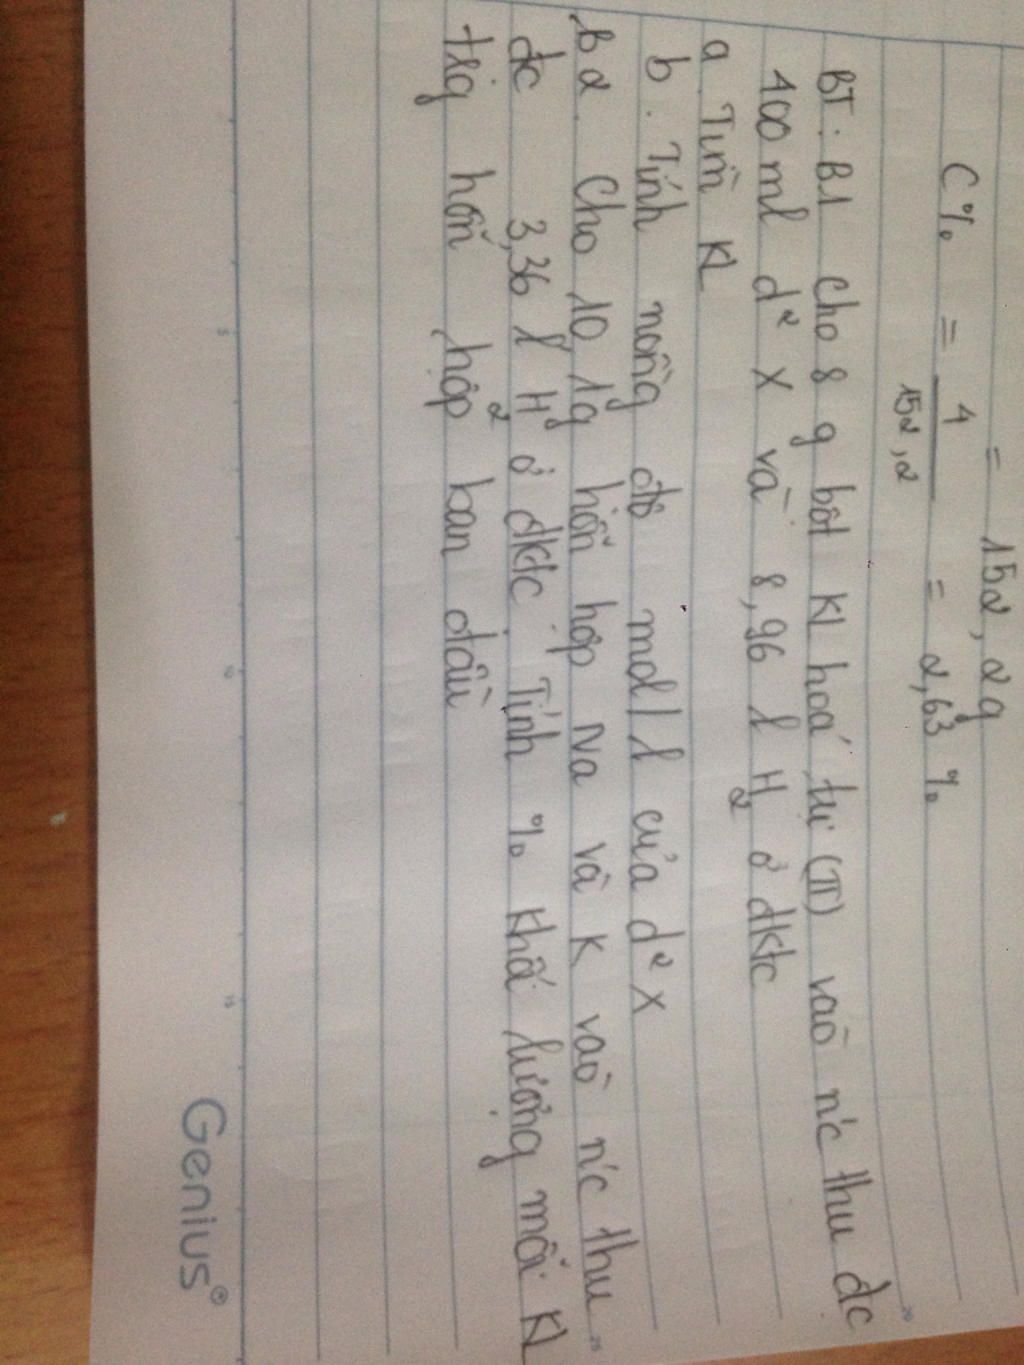 = 152,2g
C% = 4/152,2 = 2,63 %
BT: B1 cho 8 g bột Kl hoá trị (II) vào n'c thu đc
400 ml d² X và 8,96 l H2 ở đktc
a. Tìm Kl
b. Tính nồng độ mol/l của d² X
b2. Cho 10,1g hỗn hợp Na và K vào n'c thu
đc 3,36 l H2 ở đktc. Tính % khố lượng mỗi Kl
trg hỗn hợp ban đầu
5
10
15
20
25
Genius®